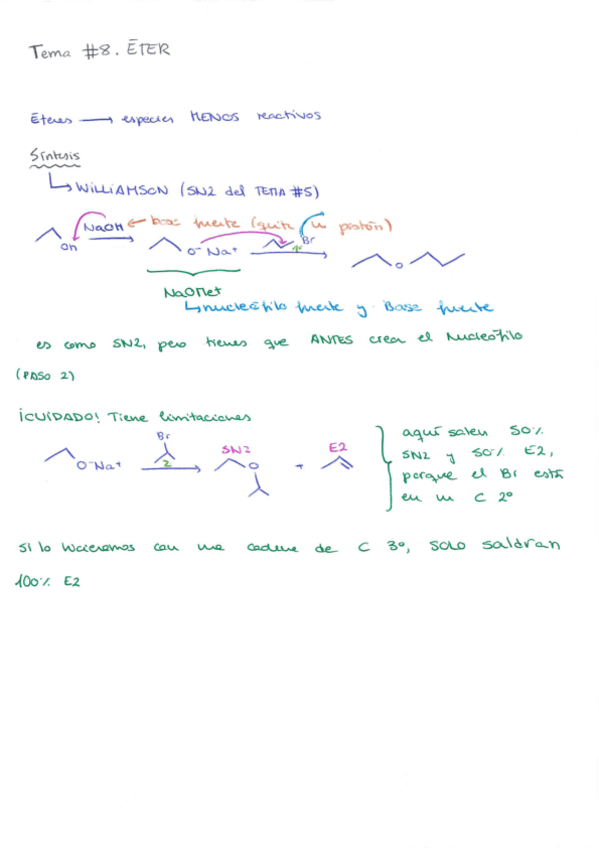 Tema #8. ÉTER
Éteres → especies MENOS reactivos
Síntesis
↳ WILLIAMSON (SN2 del TEMA #5)
NaOH ← base fuerte (quita un protón)
OH O⁻ Na⁺ Br 1º O
NaOMet
↳ nucleófilo fuerte y Base fuerte
es como SN2, pero tienes que ANTES crea el Nucleófilo
(PASO 2)
¡CUIDADO! Tiene limitaciones
Br SN2 E2
O⁻Na⁺ 2 O +
aquí salen 50%
SN2 y 50% E2,
porque el Br está
en un C 2º
Si lo hicieramos con una cadena de C 3º, solo saldran
100% E2